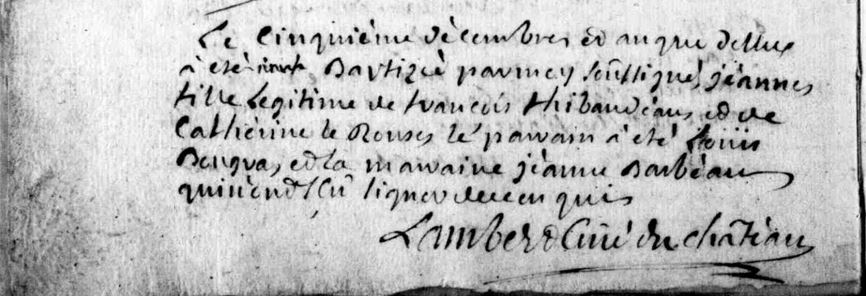 Le cinquiéme décembres et an que dessus
à été Baptizée par moy soussigné, jéannes
fille legitime de francois thibaudéaus et de
Cathérine le Rouses lé parain à été Louiis
et la maraine jéanne Barbéau
signer de ce enquis
Lambert Curé du château